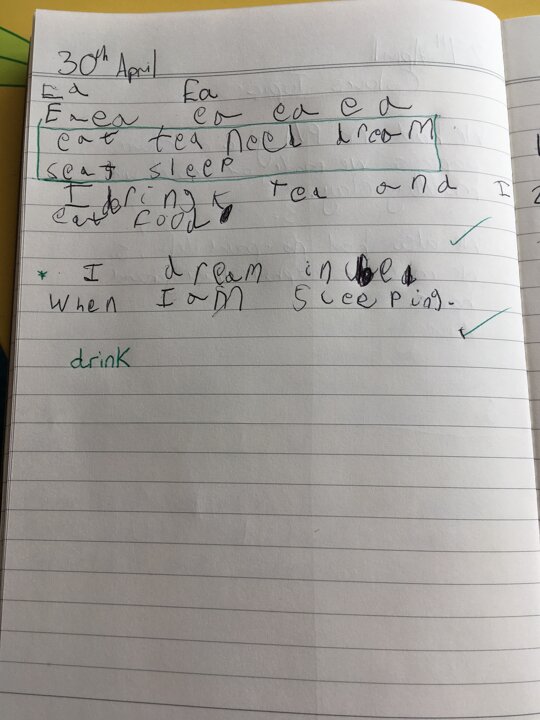 30th April
Ea Ea
Eaea ea ea ea
eat tea need dream
seat sleep
I dringk tea and I
eat food
* I dream in bed
When I am Sleeping.
drink